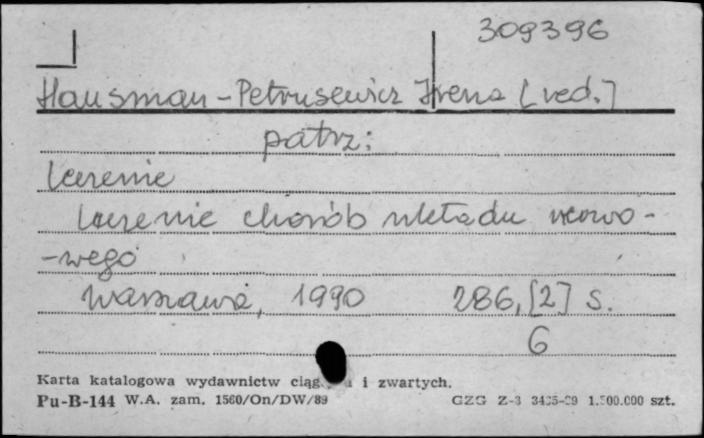 309396
Hausman-Petrusewicz Irena [red.]
patrz:
Leczenie
Leczenie chorób układu nerwo-
-wego
Warszawa, 1990 286,[2] s.
6
Karta katalogowa wydawnictw i zwartych.
Pu-B-144 W.A. zam. 1560/On/DW/89 GZG Z-3 1.500.000 szt.